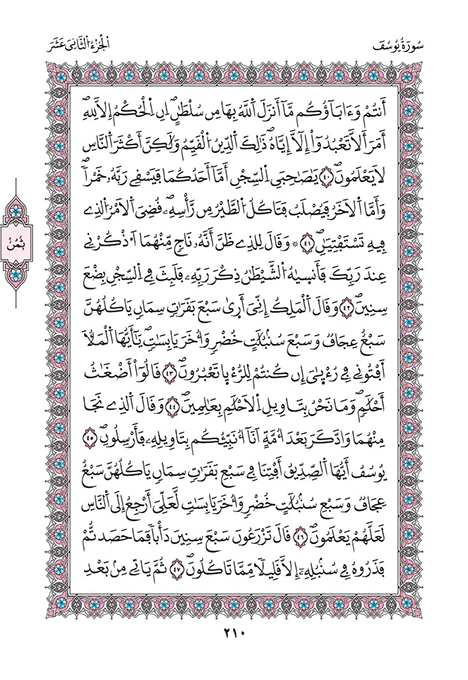 سُورَةُ يُوسُفَ
اَلْجُزْءُ الثَّانِي عَشَرَ
أَنتُمْ وَءَابَآؤُكُم مَّآ أَنزَلَ اَللَّهُ بِهَا مِن سُلْطَٰنٍۖ اِنِ اِ۬لْحُكْمُ إِلَّا لِلهِ
أَمَرَ أَلَّا تَعْبُدُوٓاْ إِلَّآ إِيَّاهُۖ ذَٰلِكَ اَ۬لدِّينُ اُ۬لْقَيِّمُ وَلَٰكِنَّ أَكْثَرَ اَ۬لنَّاسِ
لَا يَعْلَمُونَۖ ٤٠ يَٰصَٰحِبَيِ اِ۬لسِّجْنِ أَمَّآ أَحَدُكُمَا فَيَسْقِے رَبَّهُۥ خَمْراٗۖ
وَأَمَّا اَ۬لْأٓخَرُ فَيُصْلَبُ فَتَاكُلُ اُ۬لطَّيْرُ مِن رَّأْسِهِۦۖ قُضِيَ اَ۬لْأَمْرُ اُ۬لذِے
فِيهِ تَسْتَفْتِيَٰنِۖ ٤١ ۞ وَقَالَ لِلذِے ظَنَّ أَنَّهُۥ نَاجٖ مِّنْهُمَا اَ۟ذْكُرْنِے
عِندَ رَبِّكَ فَأَنس۪يٰهُ اُ۬لشَّيْطَٰنُ ذِكْرَ رَبِّهِۦ فَلَبِثَ فِے اِ۬لسِّجْنِ بِضْعَ
سِنِينَۖ ٤٢ وَقَالَ اَ۬لْمَلِكُ إِنِّيَ أَر۪يٰ سَبْعَ بَقَرَٰتٖ سِمَانٖ يَاكُلُهُنَّ
سَبْعٌ عِجَافٞ وَسَبْعَ سُنۢبُلَٰتٍ خُضْرٖ وَأُخَرَ يَابِسَٰتٖۖ يَٰٓأَيُّهَا اَ۬لْمَلَأُ
اَ۬فْتُونِے فِے رُءْيٰ۪يَ إِن كُنتُمْ لِلرُّءْي۪ا تَعْبُرُونَۖ ٤٣ قَالُوٓاْ أَضْغَٰثُ
أَحْلَٰمٖۖ وَمَا نَحْنُ بِتَاوِيلِ اِ۬لْأَحْلَٰمِ بِعَٰلِمِينَۖ ٤٤ وَقَالَ اَ۬لذِے نَجَا
مِنْهُمَا وَادَّكَرَ بَعْدَ أُمَّةٍ اَنَآ أُنَبِّئُكُم بِتَاوِيلِهِۦ فَأَرْسِلُونِۖ ٤٥
يُوسُفُ أَيُّهَا اَ۬لصِّدِّيقُ أَفْتِنَا فِے سَبْعِ بَقَرَٰتٖ سِمَانٖ يَاكُلُهُنَّ سَبْعٌ
عِجَافٞ وَسَبْعِ سُنۢبُلَٰتٍ خُضْرٖ وَأُخَرَ يَابِسَٰتٖ لَّعَلِّيَ أَرْجِعُ إِلَى اَ۬لنَّاسِ
لَعَلَّهُمْ يَعْلَمُونَۖ ٤٦ قَالَ تَزْرَعُونَ سَبْعَ سِنِينَ دَأْباٗ فَمَا حَصَدتُّمْ
فَذَرُوهُ فِے سُنۢبُلِهِۦٓ إِلَّا قَلِيلاٗ مِّمَّا تَاكُلُونَۖ ٤٧ ثُمَّ يَاتِے مِنۢ بَعْدِ
ثُمُنُ
٢١٠